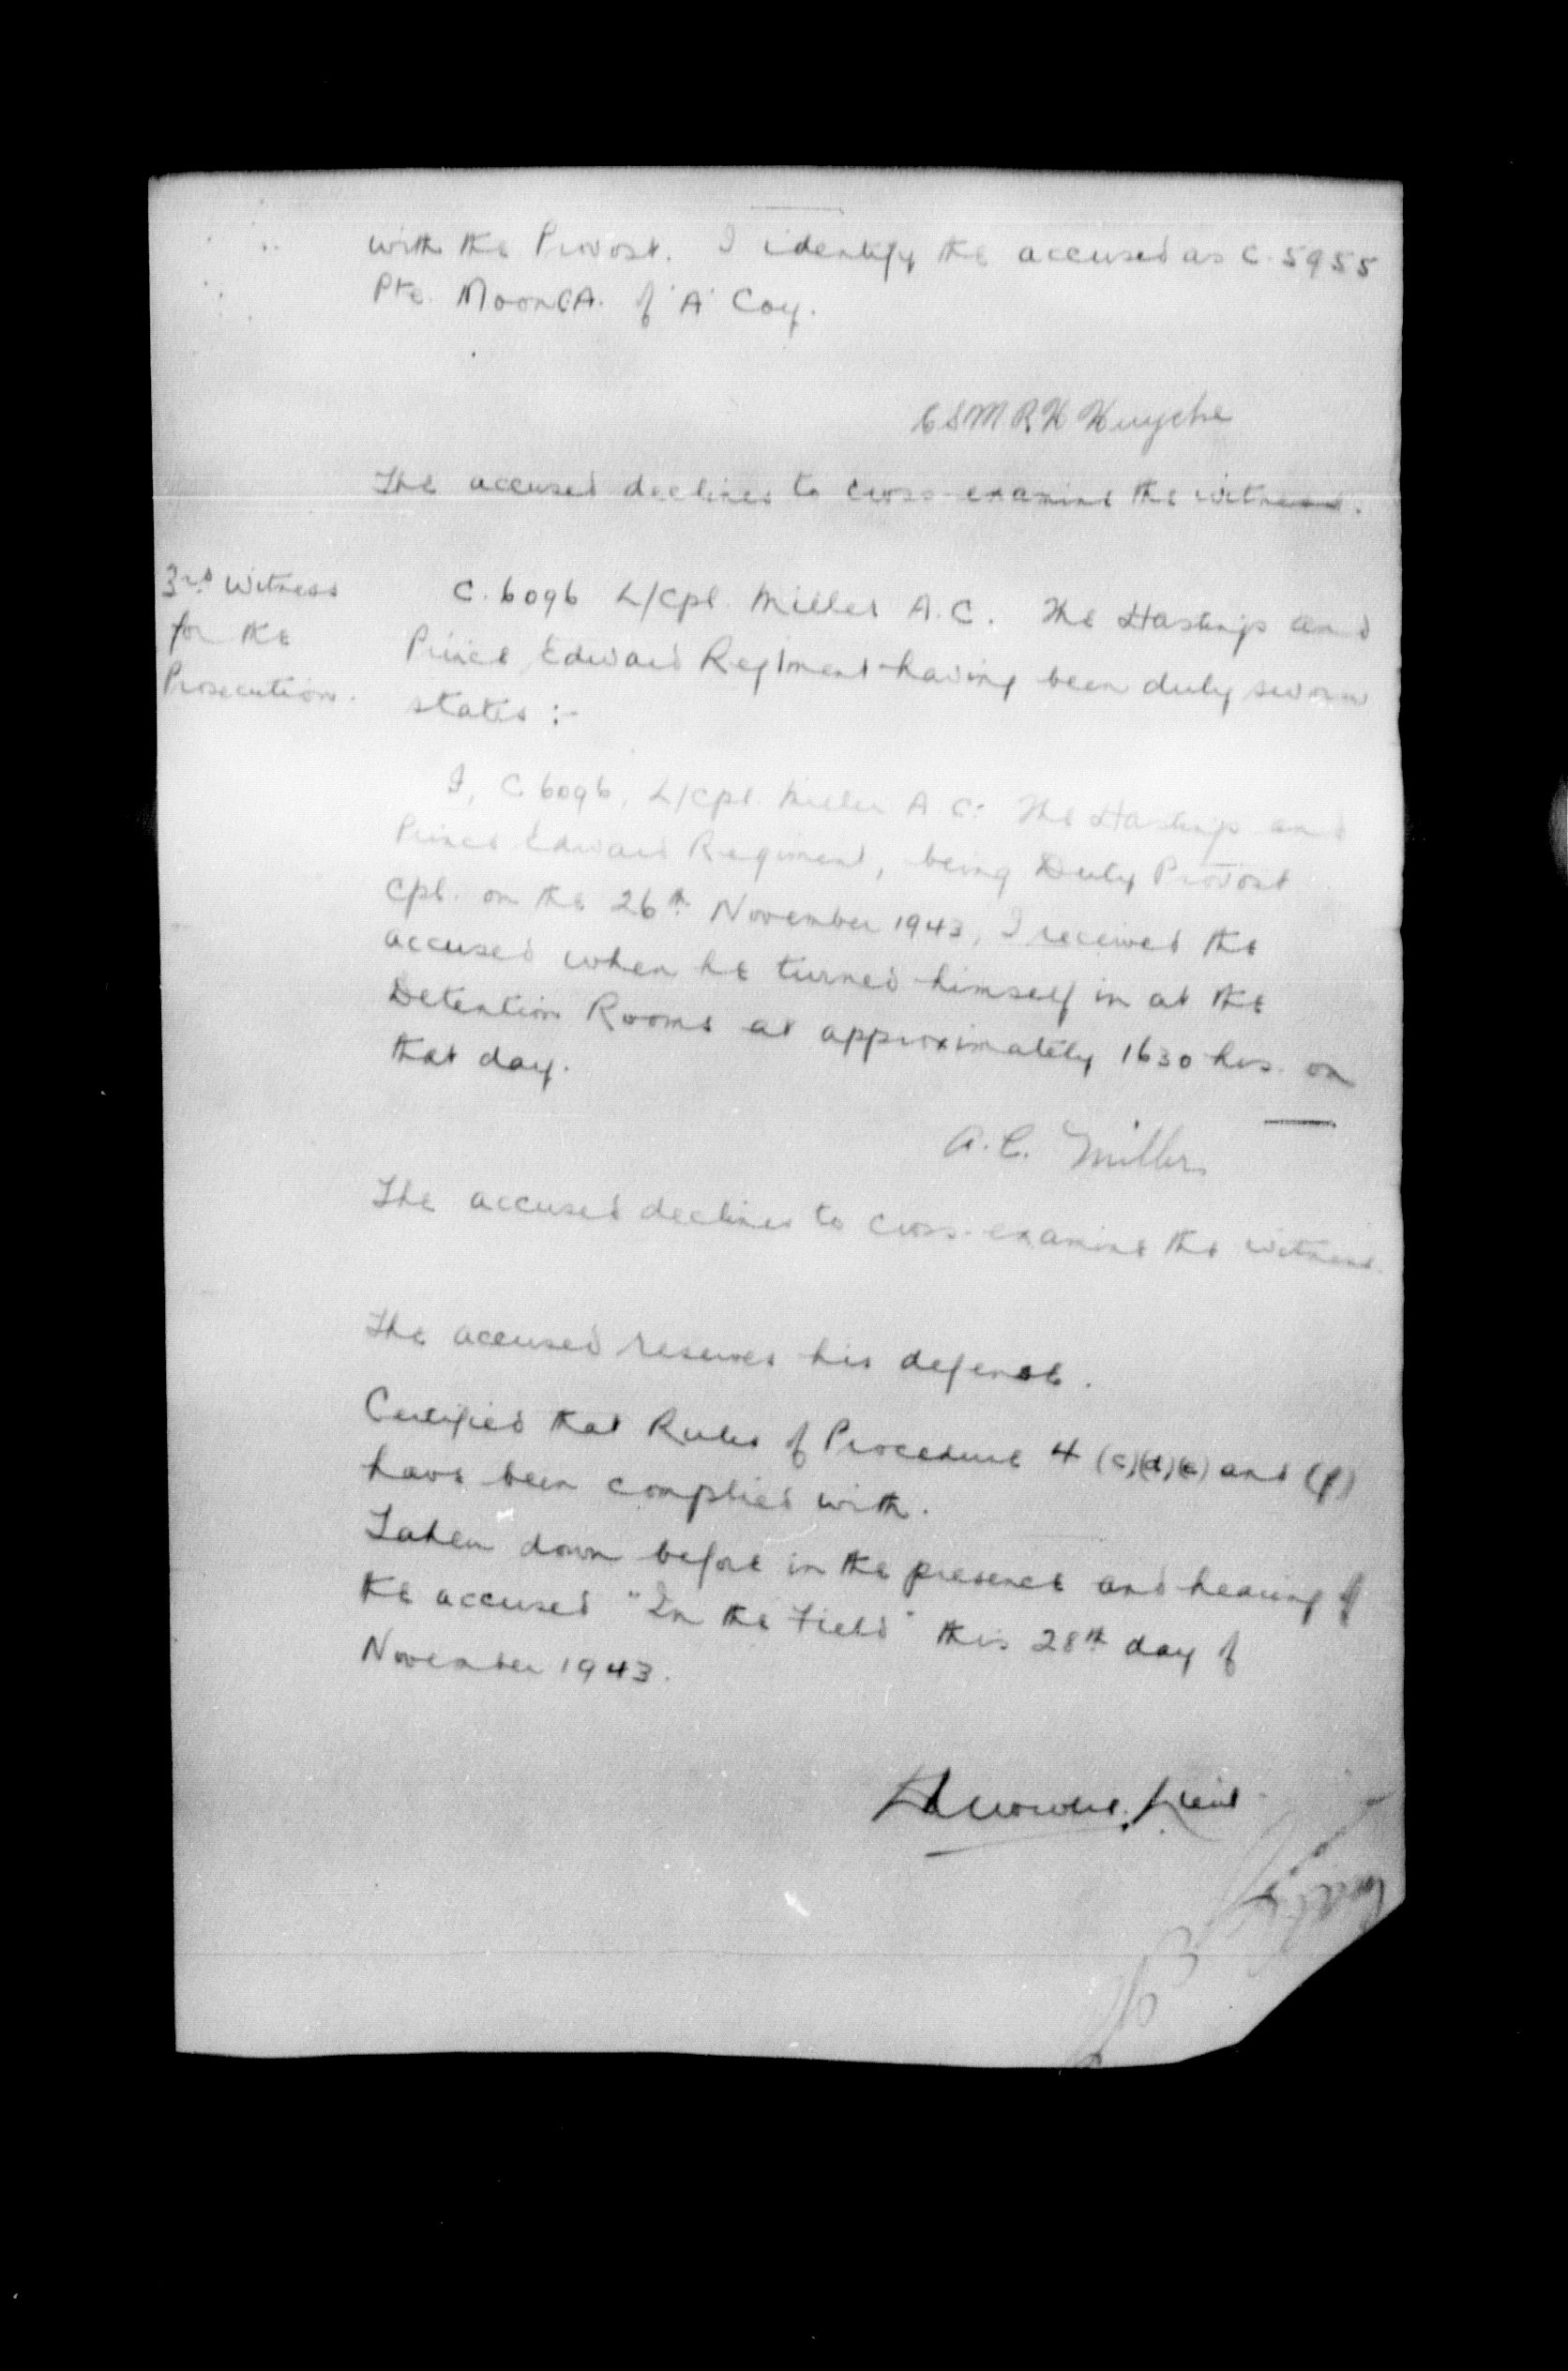 with the Provost. I identify the accused as C. 5955
Pte. Moon C.A. of 'A' Coy.
CSM R H
The accused declines to cross-examine the witness.
3rd Witness
for the
Prosecution.
C. 6096 L/Cpl. Miller A.C. The Hastings and
Prince Edward Regiment having been duly sworn
states :-
I, C. 6096, L/Cpl. Miller A.C. The Hastings and
Prince Edward Regiment, being Duty Provost
Cpl. on the 26th November 1943, I received the
accused when he turned himself in at the
Detention Rooms at approximately 1630 hrs. on
that day.
A.C. Miller
The accused declines to cross-examine the witness.
The accused reserves his defense.
Certified that Rules of Procedure 4 (c)(d)(e) and (f)
have been complied with.
Taken down before in the presence and hearing of
the accused "In the Field" this 28th day of
November 1943.
Lieut.